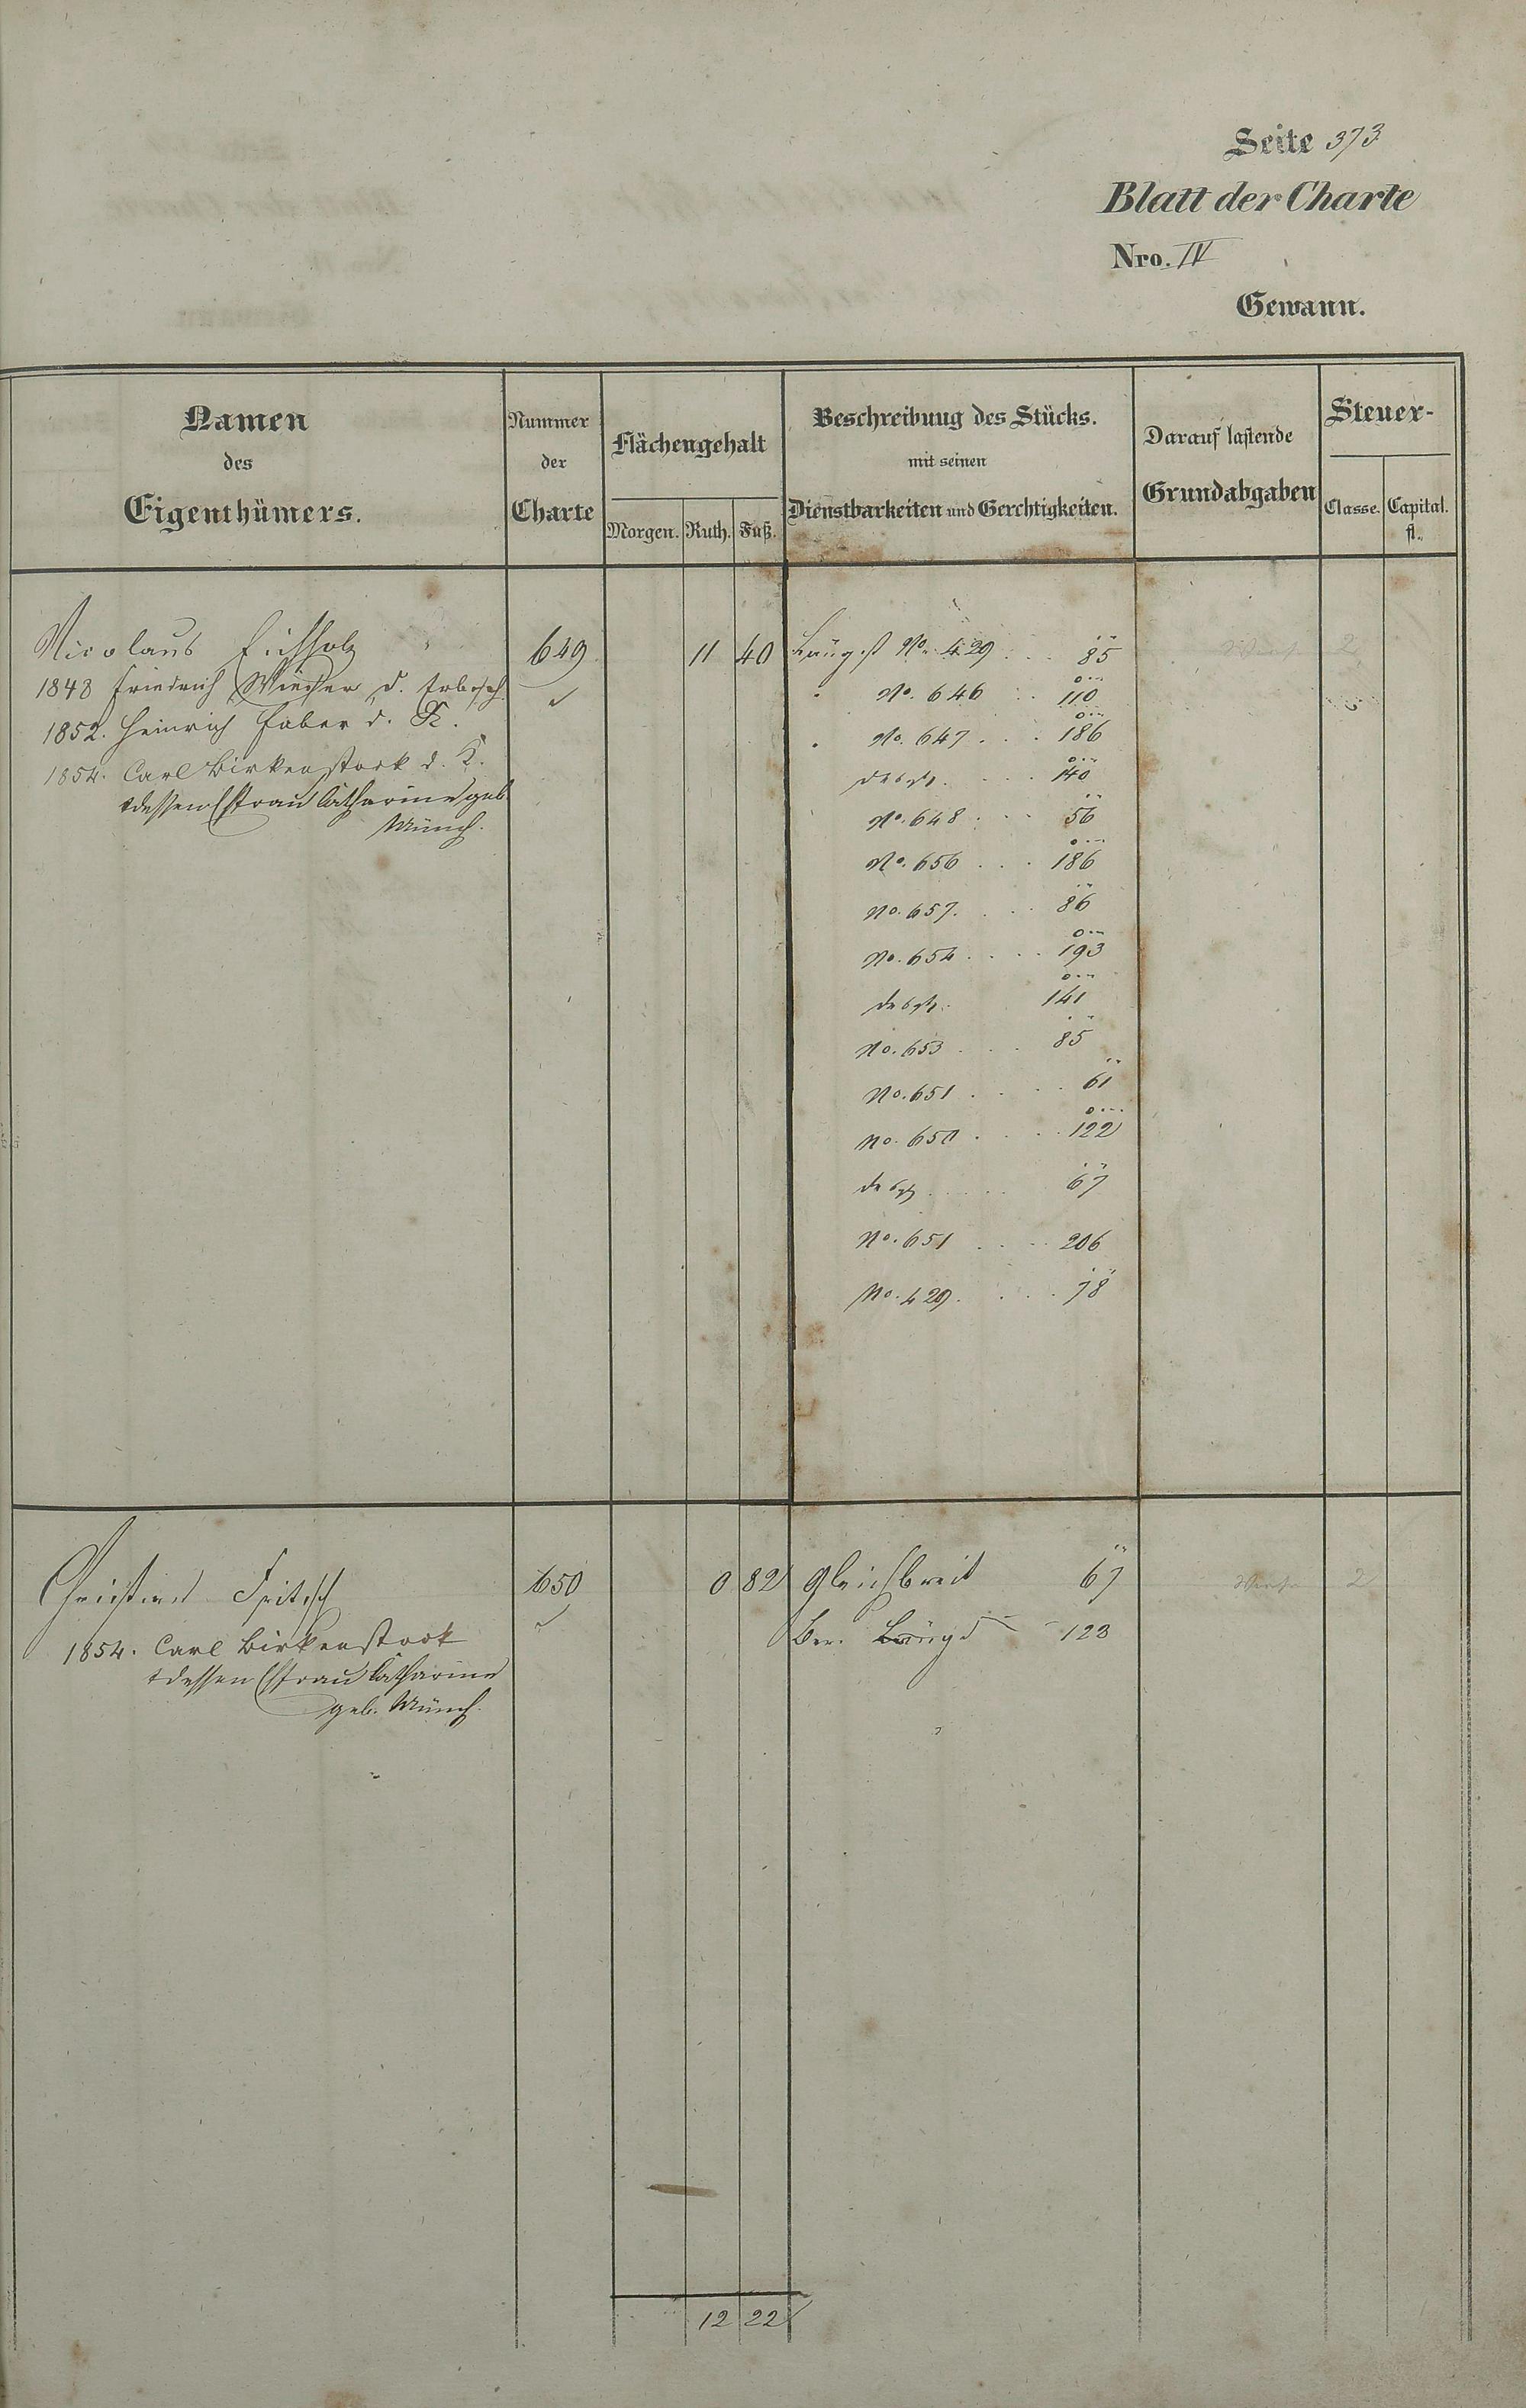 Seite 373
Blatt der Charte
Nro. IV
Gewann.
Namen
des
Eigenthümers.
Nummer
der
Charte
Flächengehalt
Morgen. Ruth. Fuß.
Beschreibung des Stücks.
mit seinen
Dienstbarkeiten und Gerchtigkeiten.
Darauf lastende
Grundabgaben
Steuer-
Classe. Capital.
fl.
Nicolaus Eichholz 649 11 40 Längst No. 429 . . . 85 2
1848 Friedrich d. Erbsch.
1852. Heinrich Faber d. K.
1854. Carl Birkenstock d. K.
& dessen Ehfrau Catharine geb.
Münch.
No. 646 . . 110
No. 647 . . . 186
desgl. . . . . 140
No. 648 . . . 56
No. 656 . . . 186
No. 657. . . . 86
No. 654 . . . . 193
desgl. 141
No. 653 . . . 85
No. 651 . . . . 61
No. 650 . . . . 122
desgl. . . . . 67
No. 651 . . . 206
No. 429. . . . 78
Christian Fritsch 650 0 82 Gleichbreit 67 2
1854. Carl Birkenstock
& dessen Ehfrau Catharine
geb. Münch.
Ber. Längd 123
12 22